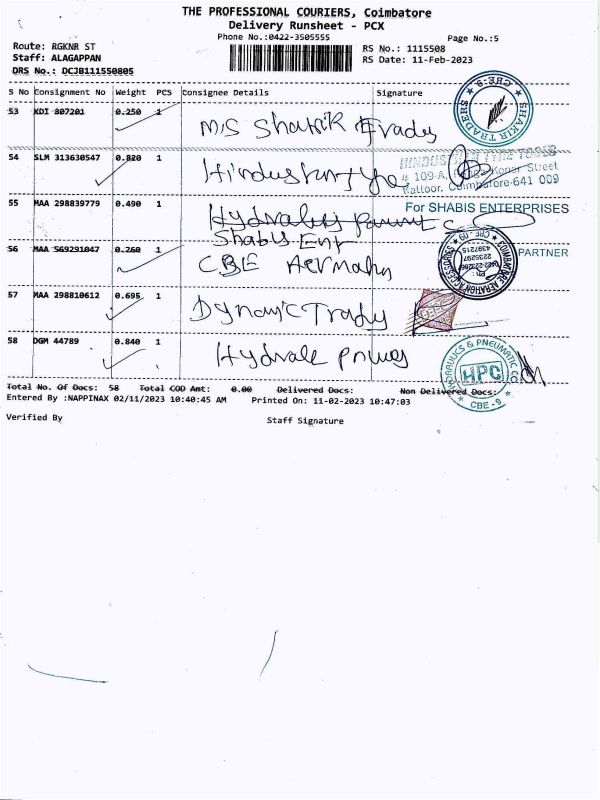 THE PROFESSIONAL COURIERS, Coimbatore
Delivery Runsheet - PCX
Phone No.:0422-3505555
Page No.:5
Route: RGKNR ST
Staff: ALAGAPPAN
DRS No.: DCJB111550805
RS No.: 1115508
RS Date: 11-Feb-2023
S No Consignment No Weight PCS Consignee Details Signature
53 KDI 807201 0.250 1 M/S
SHAKIR TRADERS ★ CBE-9 ★
54 SLM 313630547 0.820 1
# 109-A, Konar Street
Coimbatore-641 009
55 MAA 298839779 0.490 1
For SHABIS ENTERPRISES
Shabis Ent
56 MAA 569291047 0.260 1 CBE
PARTNER
COIMBATORE AERATION ACCESSORIES
57 MAA 298810612 0.695 1 Dynamic Trady
58 DGM 44789 0.840 1
& PNEUMATIC
HPC
★ CBE - 9 ★
Total No. Of Docs: 58 Total COD Amt: 0.00 Delivered Docs: Non Delivered Docs:
Entered By :NAPPINAX 02/11/2023 10:40:45 AM Printed On: 11-02-2023 10:47:03
Verified By Staff Signature